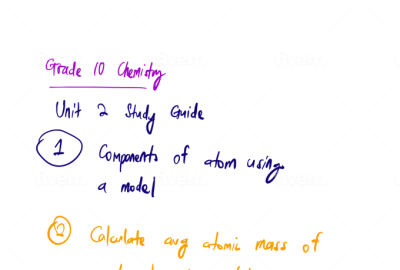 Grade 10 Chemistry
Unit 2 Study Guide
1 Components of atom using
a model
2 Calculate avg atomic mass of